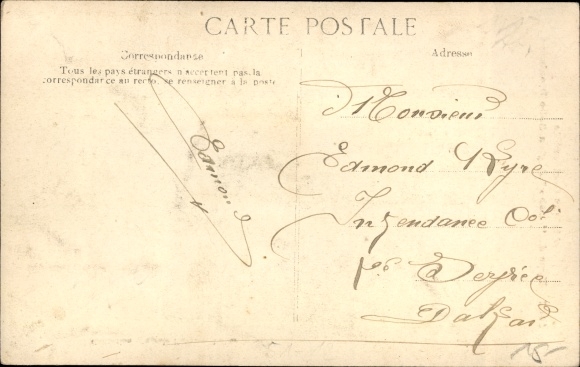 CARTE POSTALE
Correspondance
Tous les pays étrangers n'acceptent pas la
correspondance au recto, se renseigner à la poste
Edmond
Adresse
Monsieur
Edmond
Intendance Col
Dakar
15